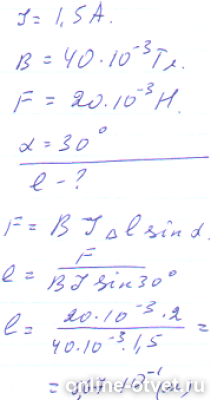 J = 1,5 A.
B = 40·10⁻³ Тл.
F = 20·10⁻³ Н.
α = 30°
l - ?
F = B J Δl sin α.
l = F / (B J sin 30°)
l = (20·10⁻³·2) / (40·10⁻³·1,5) =
(м)
online-otvet.ru